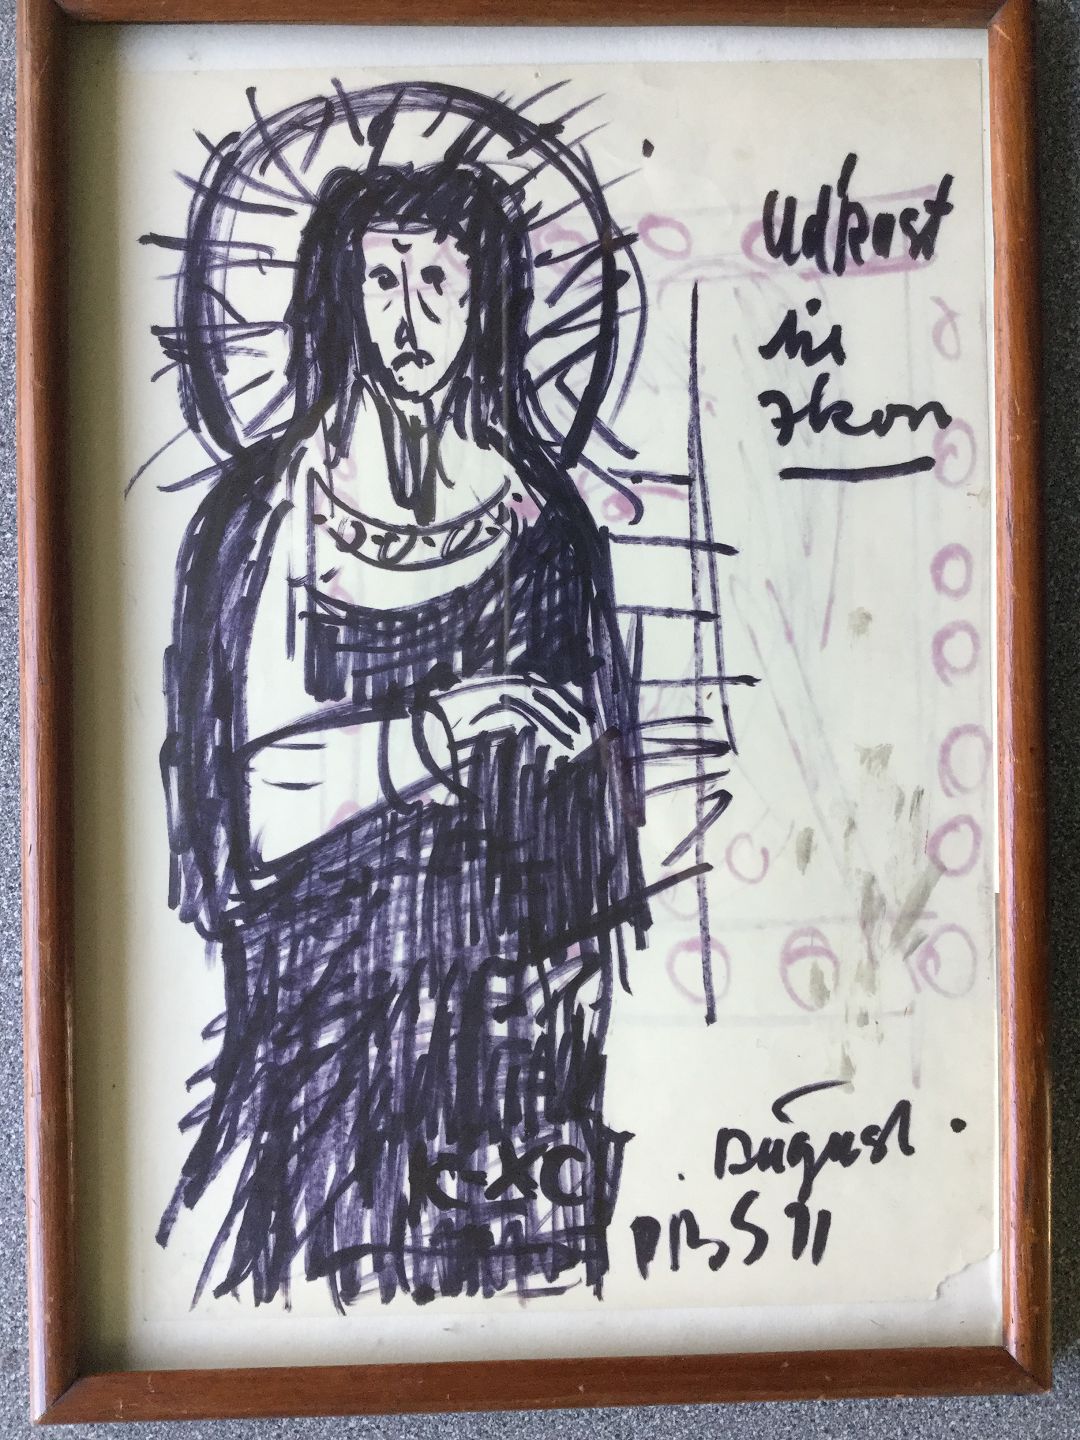 Udkast
til
Ikon
IC-XC
August
PBS 71